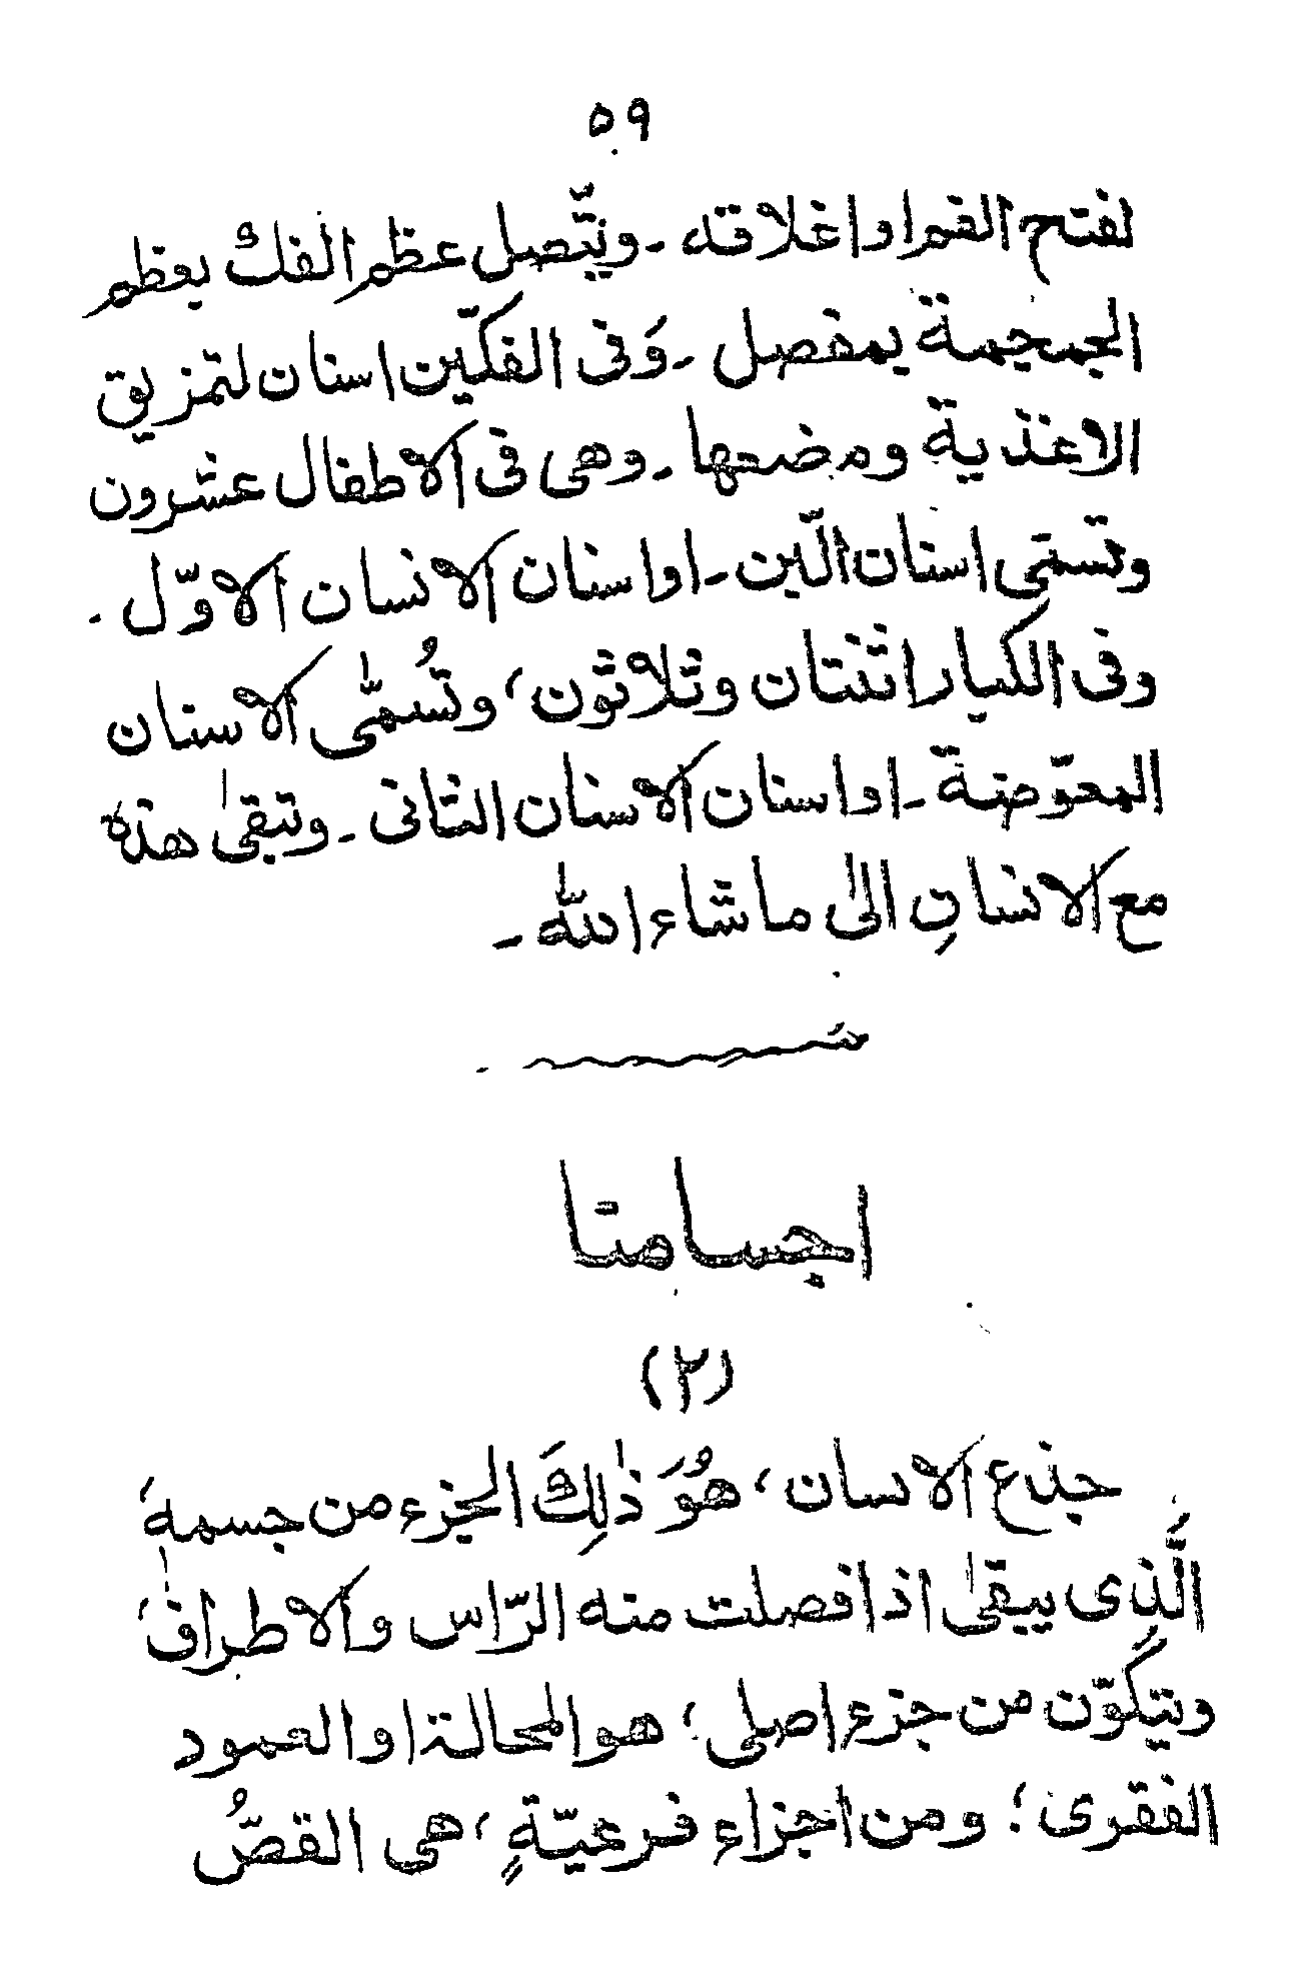 ٥٩
لفتح الفم او اغلاقه ـ ويتّصل عظم الفك بعظم
الجمجمة بمفصل ـ وَفى الفكّين اسنان لتمزيق
الاغذية ومضعها ـ وهى فى الاطفال عشرون
وتسمى اسنان الّبن ـ او اسنان الانسان الاوّل ـ
وفى الكبار اثنتان وثلاثون، وتُسمّٰى الاسنان
المعوّضة ـ او اسنان الاسنان الثانى ـ وتبقىٰ هذه
مع الانسانِ الىٰ ما شاء اللّٰه ـ
اجسامنا
(٢)
جذع الانسان، هُوَ ذٰلِكَ الجزء من جسمه،
الَّذِى يبقىٰ اذا فصلت منه الرّاس والاطراف،
ويتكوّن من جزء اصلى؛ هو المحالة او العمود
الفقرى؛ ومن اجزاء فرعيّةٍ، هى القصُّ